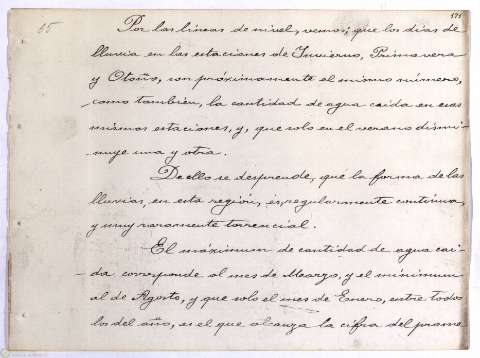 65
Por las líneas de nivel, vemos; que los días de
lluvia en las estaciones de Invierno, Primavera
y Otoño, son próximamente el mismo número,
como también, la cantidad de agua caida en esas
mismas estaciones, y, que solo en el verano dismi-
nuye una y otra.
De ello se desprende, que la forma de las
lluvias, en esta región, es, regularmente contínua,
y muy raramente torrencial.
El máximum de cantidad de agua cai-
da corresponde al mes de Marzo, y el mínimum
al de Agosto, y que solo el mes de Enero, entre todos
los del año, es el que alcanza la cifra del prome